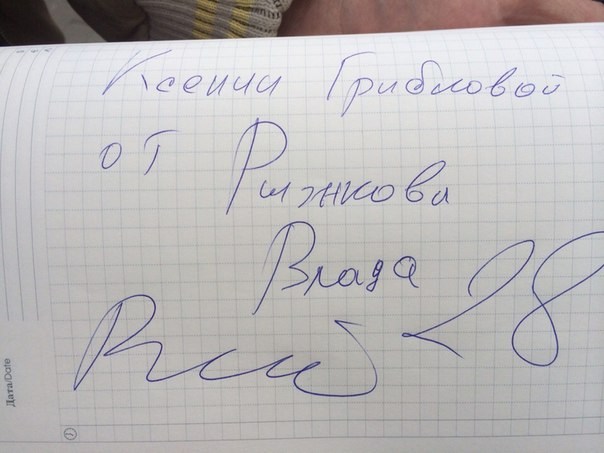 Ксении Грибловой
от
Рыжкова
Влада
28
Дата/Date